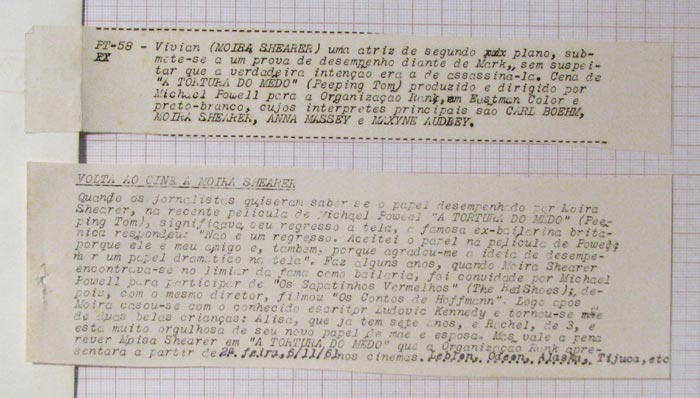 PT-58 - Vivian (MOIRA SHEARER) uma atriz de segundo plano, sub-
mete-se a um prova de desempenho diante de Mark, sem suspei-
tar que a verdadeira intenção era a de assassina-la. Cena de
"A TORTURA DO MEDO" (Peeping Tom) produzido e dirigido por
Michael Powell para a Organização Rank, em Eastman Color e
preto-branco, cujos interpretes principais são CARL BOEHM,
MOIRA SHEARER, ANNA MASSEY e MAXYNE AUDLEY.
VOLTA AO CINEMA MOIRA SHEARER
Quando os jornalistas quiseram saber se o papel desempenhado por Moira
Shearer, na recente pelicula de Michael Powell "A TORTURA DO MEDO" (Pee-
ping Tom), significava seu regresso a tela, a famosa ex-bailarina brita-
nica respondeu: "Não é um regresso. Aceitei o papel na pelicula de Powell
porque ele e meu amigo e, tambem, porque agradou-me a ideia de desempe-
nhar um papel dramatico na tela". Faz alguns anos, quando Moira Shearer
encontrava-se no limiar da fama como bailaria, foi convidade por Michael
Powell para participar de "Os Sapatinhos Vermelhos" (The RedShoes); de-
pois, com o mesmo diretor, filmou "Os Contos de Hoffmann". Logo apos
Moira casou-se com o conhecido escritor Ludovic Kennedy e tornou-se mãe
de duas belas crianças: Alisa, que ja tem sete anos, e Rachel, de 3, e
esta muito orgulhosa de seu novo papel de mãe e esposa. Mas vale a pena
rever Moisa Shearer em "A TORTURA DO MEDO" que a Organização Rank apre-
sentara a partir de 2ª feira, 6/11/61 nos cinemas. Leblon, Odeon, Alaska, Tijuca, etc